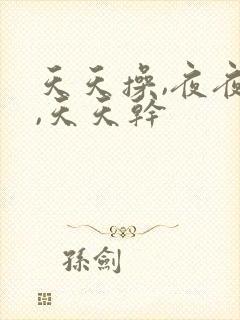 天天操,夜夜
,天天幹
孫劍